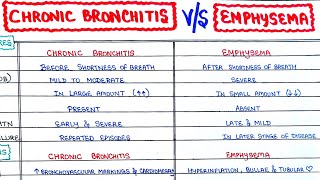 CHRONIC BRONCHITIS V/S EMPHYSEMA
RES CHRONIC BRONCHITIS EMPHYSEMA
BEFORE SHORTNESS OF BREATH AFTER SHORTNESS OF BREATH
OB) MILD TO MODERATE SEVERE
IN LARGE AMOUNT (↑↑) IN SMALL AMOUNT (↓↓)
PRESENT ABSENT
HTN EARLY & SEVERE LATE & MILD
ILURE REPEATED EPISODES IN LATER STAGE OF DISEASE
CHRONIC BRONCHITIS EMPHYSEMA
↑ BRONCHOVASCULAR MARKINGS & CARDIOMEGALY HYPERINFLATION, BULLAE & TUBULAR ♡